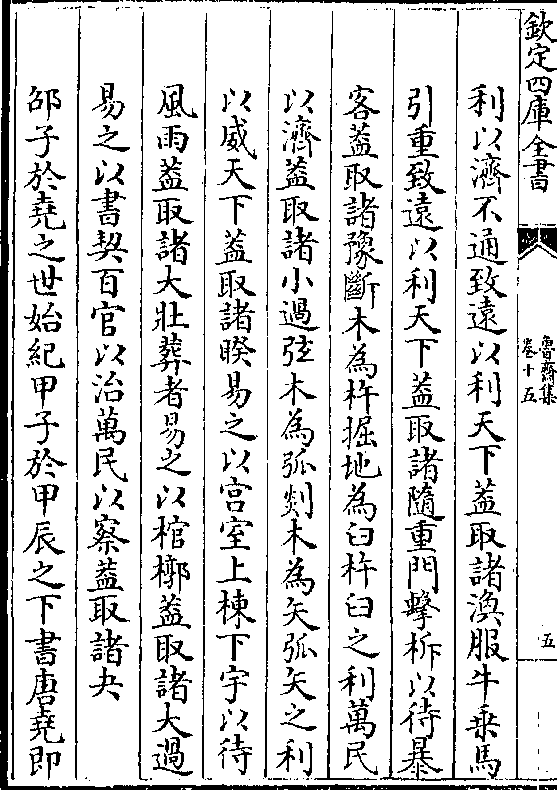 欽定四庫全書
魯齋集
卷十五
五
利以濟不通致遠以利天下蓋取諸渙服牛乗馬
引重致遠以利天下蓋取諸隨重門擊柝以待暴
客蓋取諸豫斷木為杵掘地為臼杵臼之利萬民
以濟蓋取諸小過弦木為弧剡木為矢弧矢之利
以威天下蓋取諸睽易之以宫室上棟下宇以待
風雨蓋取諸大壯葬者易之以棺槨蓋取諸大過
易之以書契百官以治萬民以察蓋取諸夬
邵子於堯之世始紀甲子於甲辰之下書唐堯即